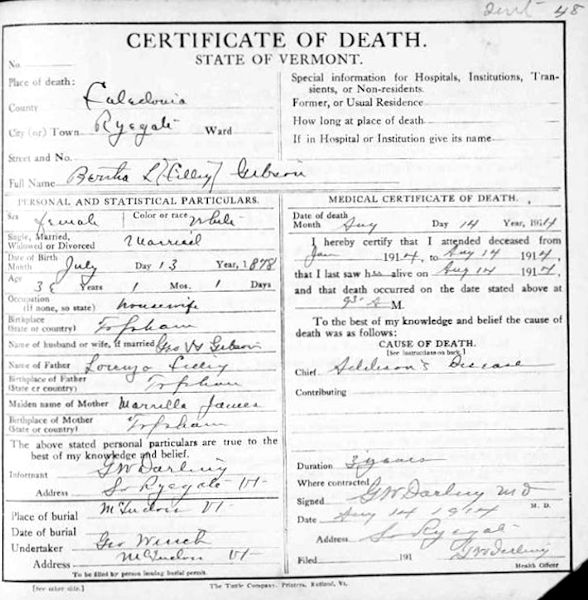 48
CERTIFICATE OF DEATH.
STATE OF VERMONT.
No.
Place of death:
County Caledonia
City (or) Town Ryegate Ward
Street and No.
Full Name Bertha L (Tilley) Gibson
Special information for Hospitals, Institutions, Transients, or Non-residents.
Former, or Usual Residence
How long at place of death
If in Hospital or Institution give its name
PERSONAL AND STATISTICAL PARTICULARS.
Sex female Color or race White
Single, Married, Widowed or Divorced Married
Date of Birth
Month July Day 13 Year, 1878
Age
Years 1 Mos. 1 Days
Occupation (If none, so state) housewife
Birthplace (State or country) Topsham
Name of husband or wife, if married Geo Gibson
Name of Father Lorenzo Tilley
Birthplace of Father (State or country) Topsham
Maiden name of Mother Marrilla James
Birthplace of Mother (State or country) Topsham
The above stated personal particulars are true to the
best of my knowledge and belief.
Informant GW Darling
Address So Ryegate Vt
Place of burial McIndoes Vt
Date of burial
Undertaker Geo Winch
Address McIndoes Vt
To be filed by person issuing burial permit.
MEDICAL CERTIFICATE OF DEATH.
Date of death
Month Aug Day 14 Year, 1914
I hereby certify that I attended deceased from
Jan 1914, to Aug 14 1914,
that I last saw her alive on Aug 14 1914,
and that death occurred on the date stated above at
M.
To the best of my knowledge and belief the cause of
death was as follows:
CAUSE OF DEATH.
[See instructions on back.]
Chief Addison's Disease
Contributing
Duration 3 years
Where contracted
Signed GW Darling MD M. D.
Date Aug 14 1914
Address So Ryegate
Filed 191 GW Darling
Health Officer
[See other side.]
The Tuttle Company, Printers, Rutland, Vt.